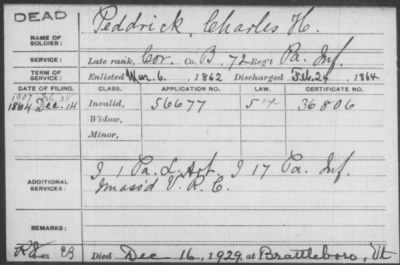 DEAD
NAME OF SOLDIER: Peddrick, Charles H.
SERVICE: Late rank, Cor. Co. B, 72 Reg't Pa. Inf.
TERM OF SERVICE: Enlisted Mar. 6. 1862 Discharged Feb. 24 1864
DATE OF FILING. CLASS. APPLICATION NO. LAW. CERTIFICATE NO.
1907
1864 Dec. 14 Invalid, 56677 36806
Widow,
Minor,
ADDITIONAL SERVICES: I 1 Pa. L. Art. I 17 Pa. Inf.
Unass'd V. R. C.
REMARKS:
Died Dec 16, 1929, at Brattleboro, Vt